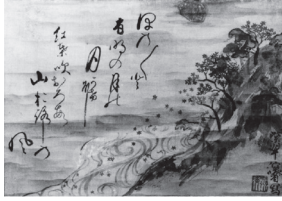 ほの〳〵と
有明の月の
月影に
紅葉吹おろす
山おろしの
風